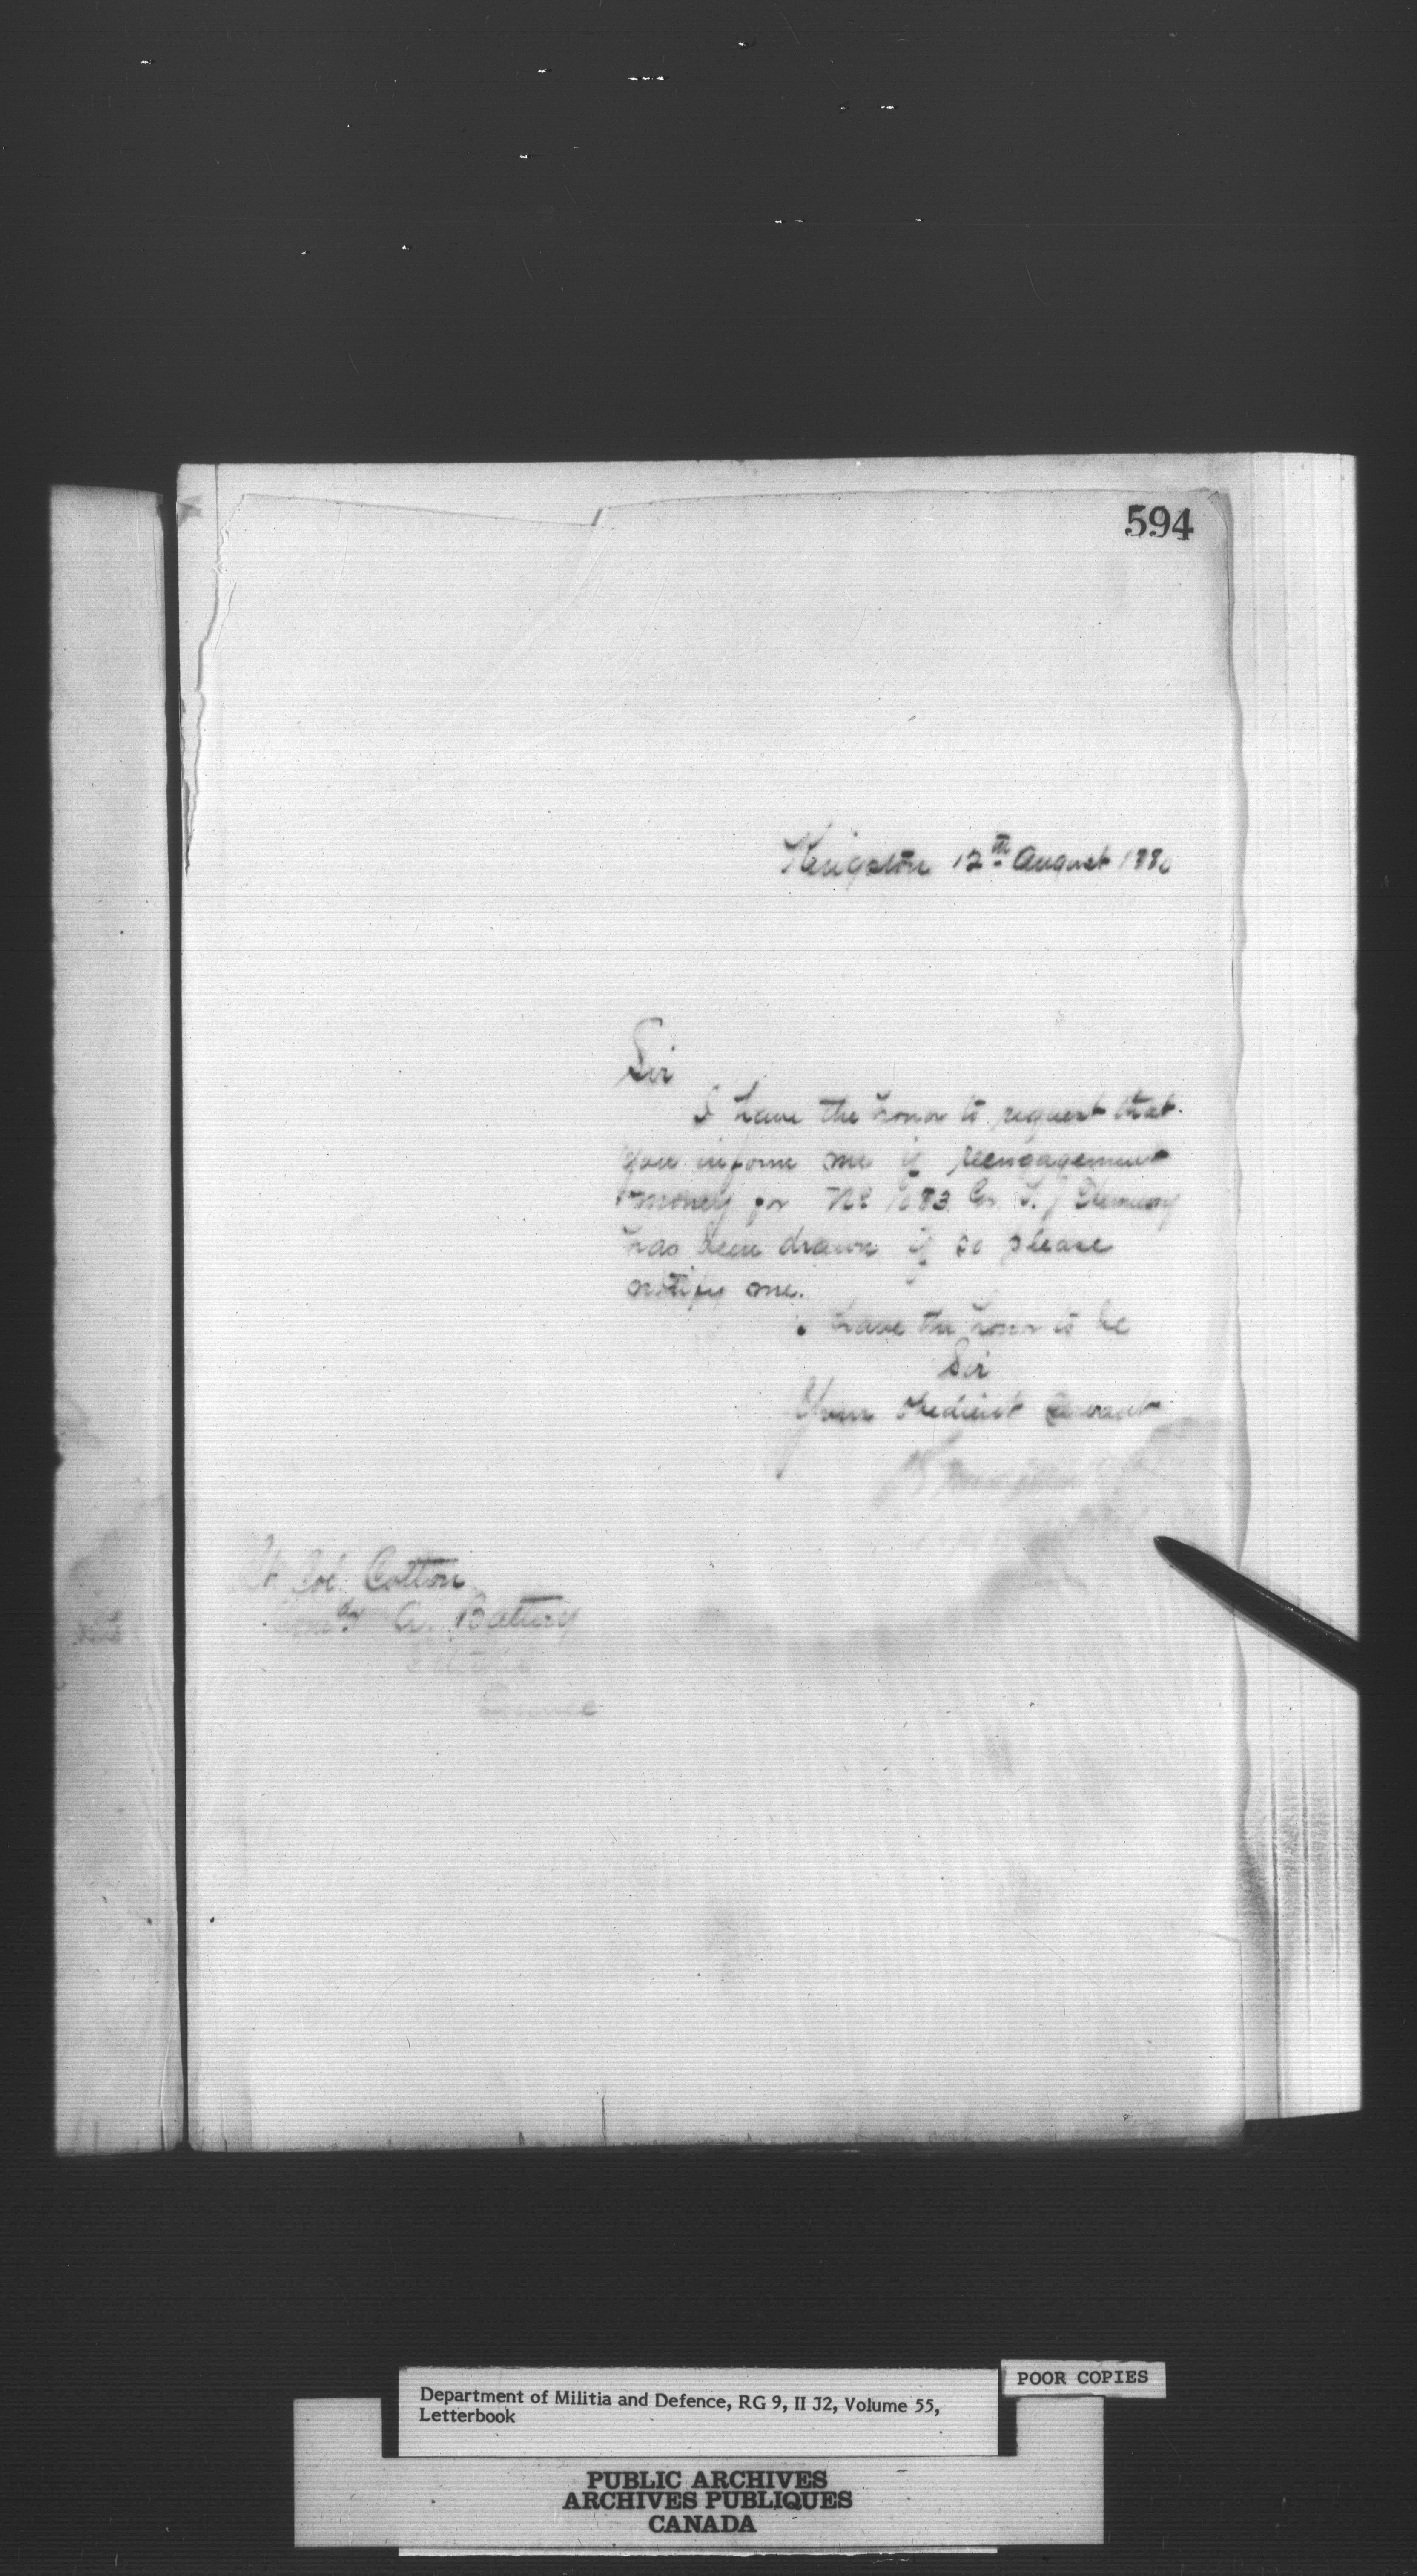 594
Kingston 12th August 1880
Sir
I have the honor to request that
you inform me if reengagement
money for No 1083 Gr.
has been drawn if so please
notify me.
I have the honor to be
Sir
Your obedient servant
Lt Col Cotton
Comdg A. Battery
Citadel
Quebec
POOR COPIES
Department of Militia and Defence, RG 9, II J2, Volume 55,
Letterbook
PUBLIC ARCHIVES
ARCHIVES PUBLIQUES
CANADA